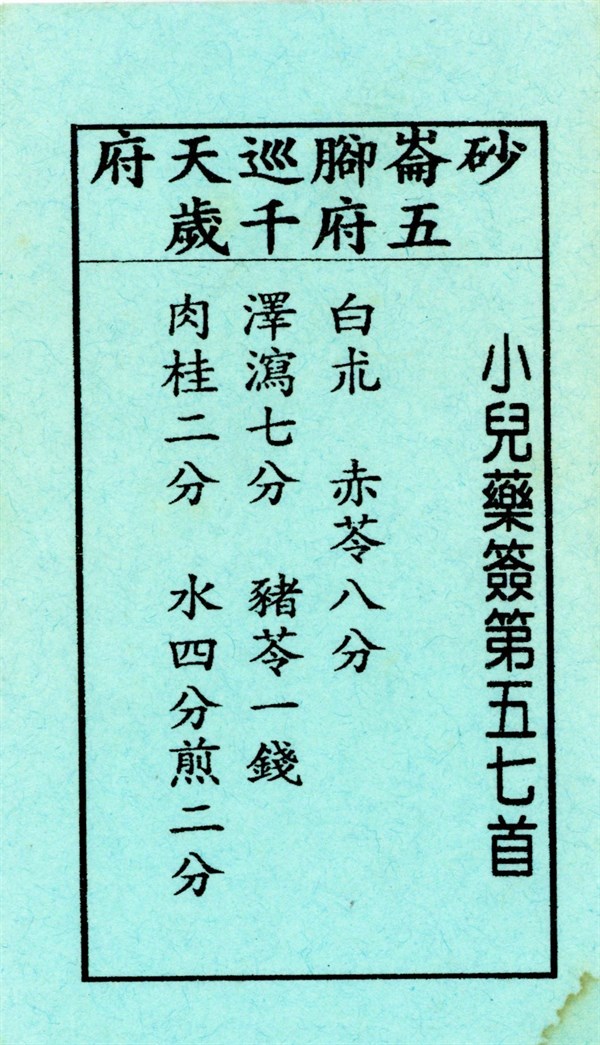 砂崙腳巡天府
五府千歲
小兒藥簽第五七首
白朮　赤苓八分
澤瀉七分　豬苓一錢
肉桂二分　水四分煎二分